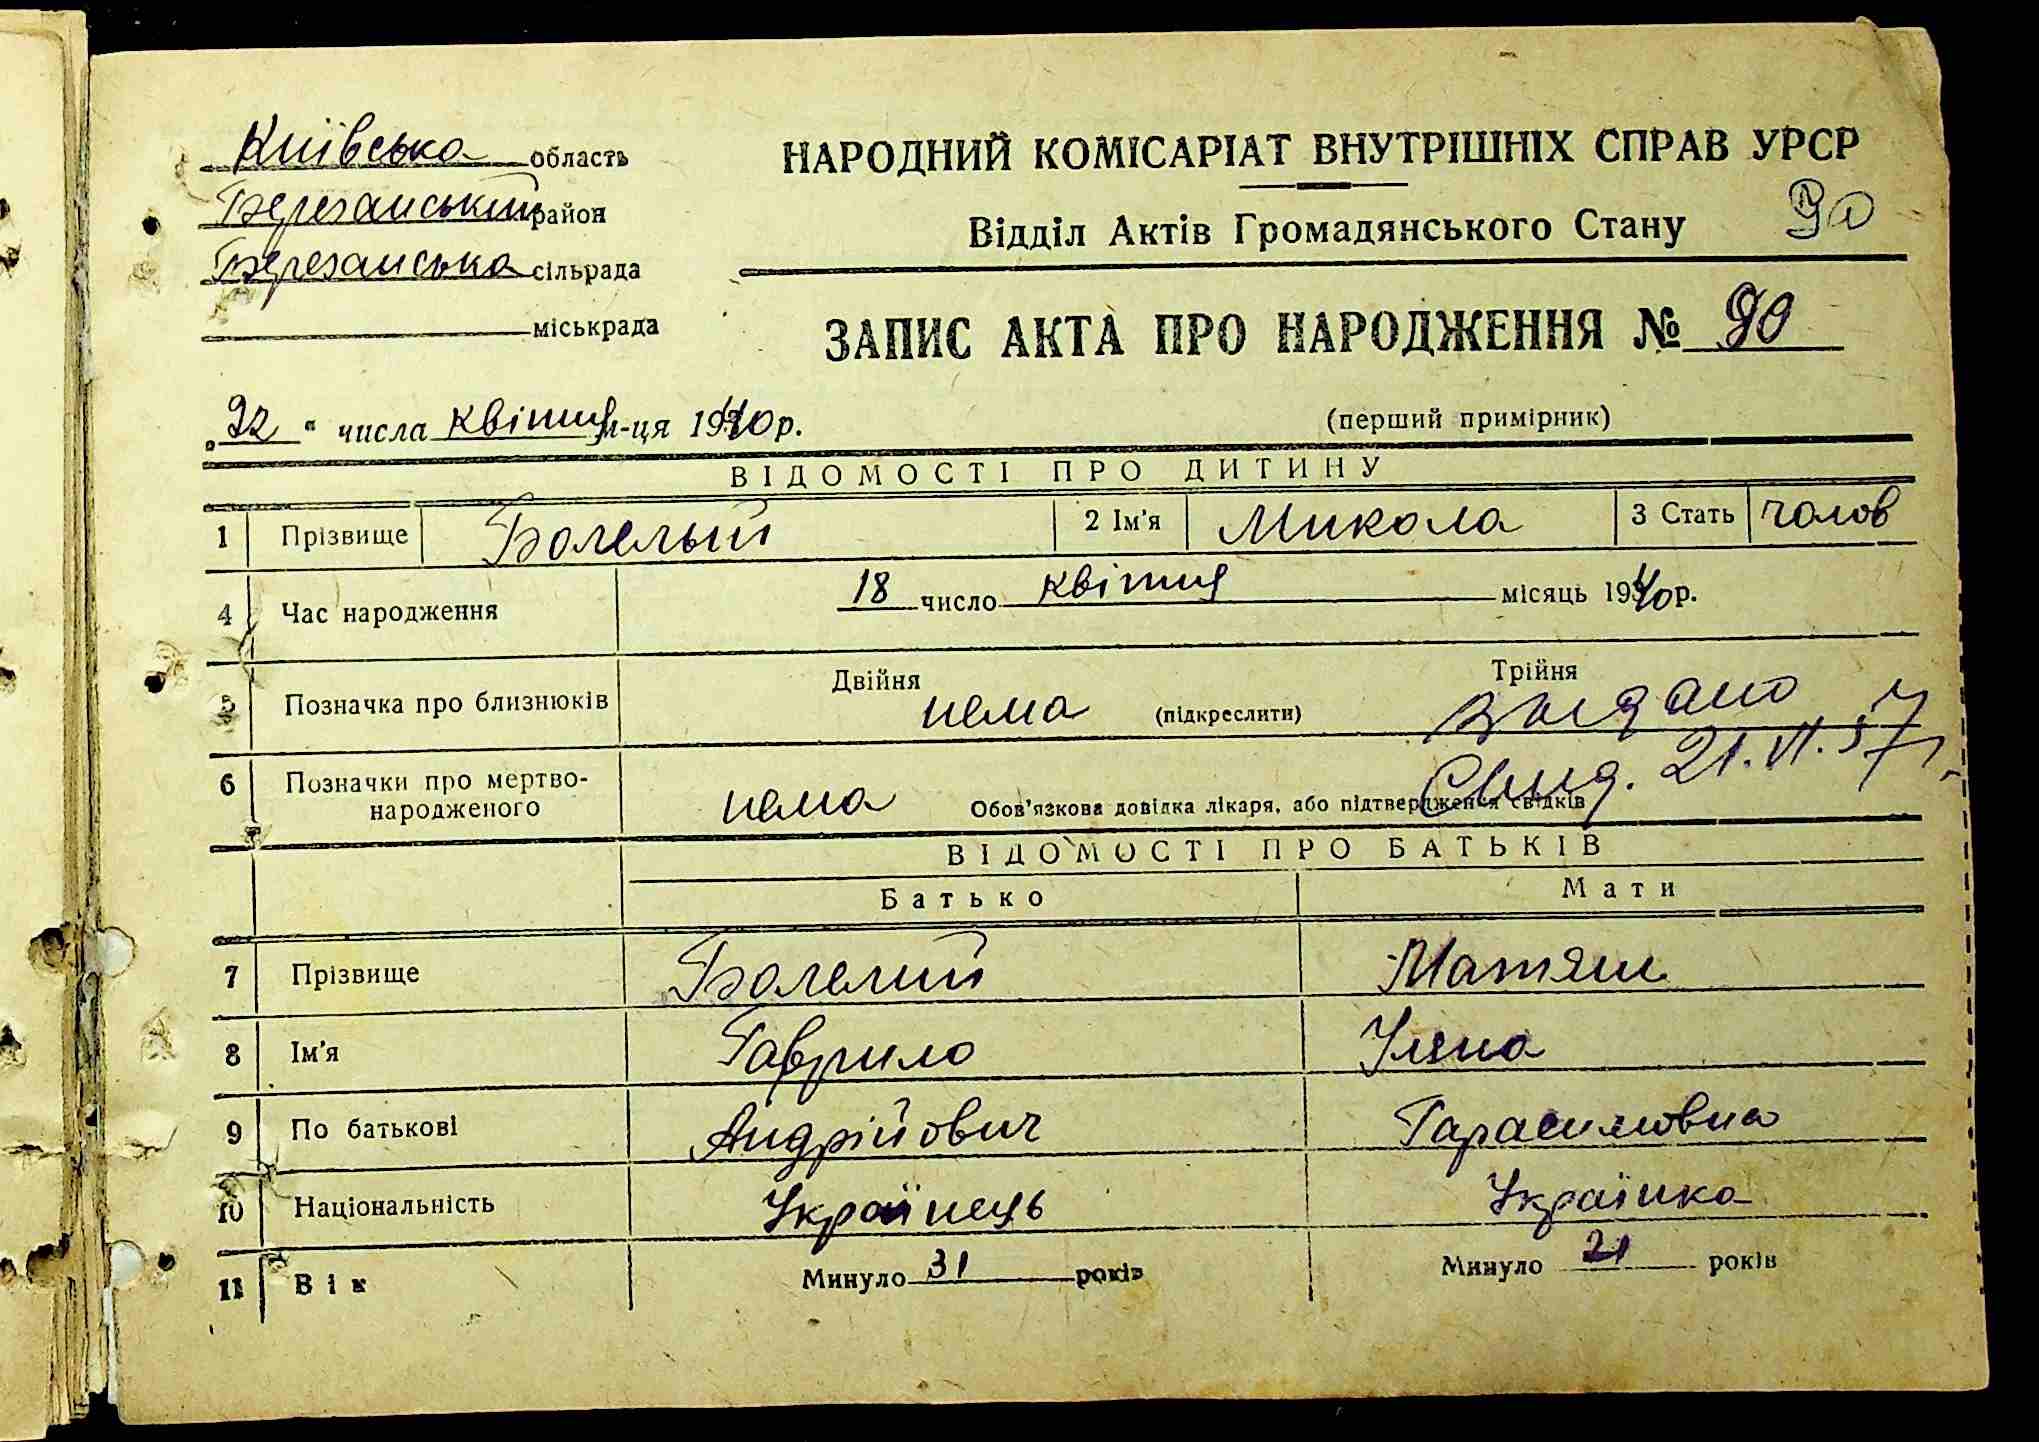 Київська область
Березанський район
Березанська сільрада
міськрада
НАРОДНИЙ КОМІСАРІАТ ВНУТРІШНІХ СПРАВ УРСР
Відділ Актів Громадянського Стану
90
ЗАПИС АКТА ПРО НАРОДЖЕННЯ № 90
„22“ числа квітня м-ця 1940 р.
(перший примірник)
ВІДОМОСТІ ПРО ДИТИНУ
1 Прізвище Болелый 2 Ім'я Микола 3 Стать чолов
4 Час народження 18 число квітня місяць 1940 р.
5 Позначка про близнюків Двійня нема (підкреслити) Трійня
Выдано
6 Позначки про мертво-
народженого нема Обов'язкова довідка лікаря, або підтвердження свідків
Свид. 21.VI.57 г.
ВІДОМОСТІ ПРО БАТЬКІВ
Батько Мати
7 Прізвище Болелий Матяш
8 Ім'я Гаврило Уляна
9 По батькові Андрійович Гарасимовна
10 Національність Українець Українка
11 Вік Минуло 31 років Минуло 21 років